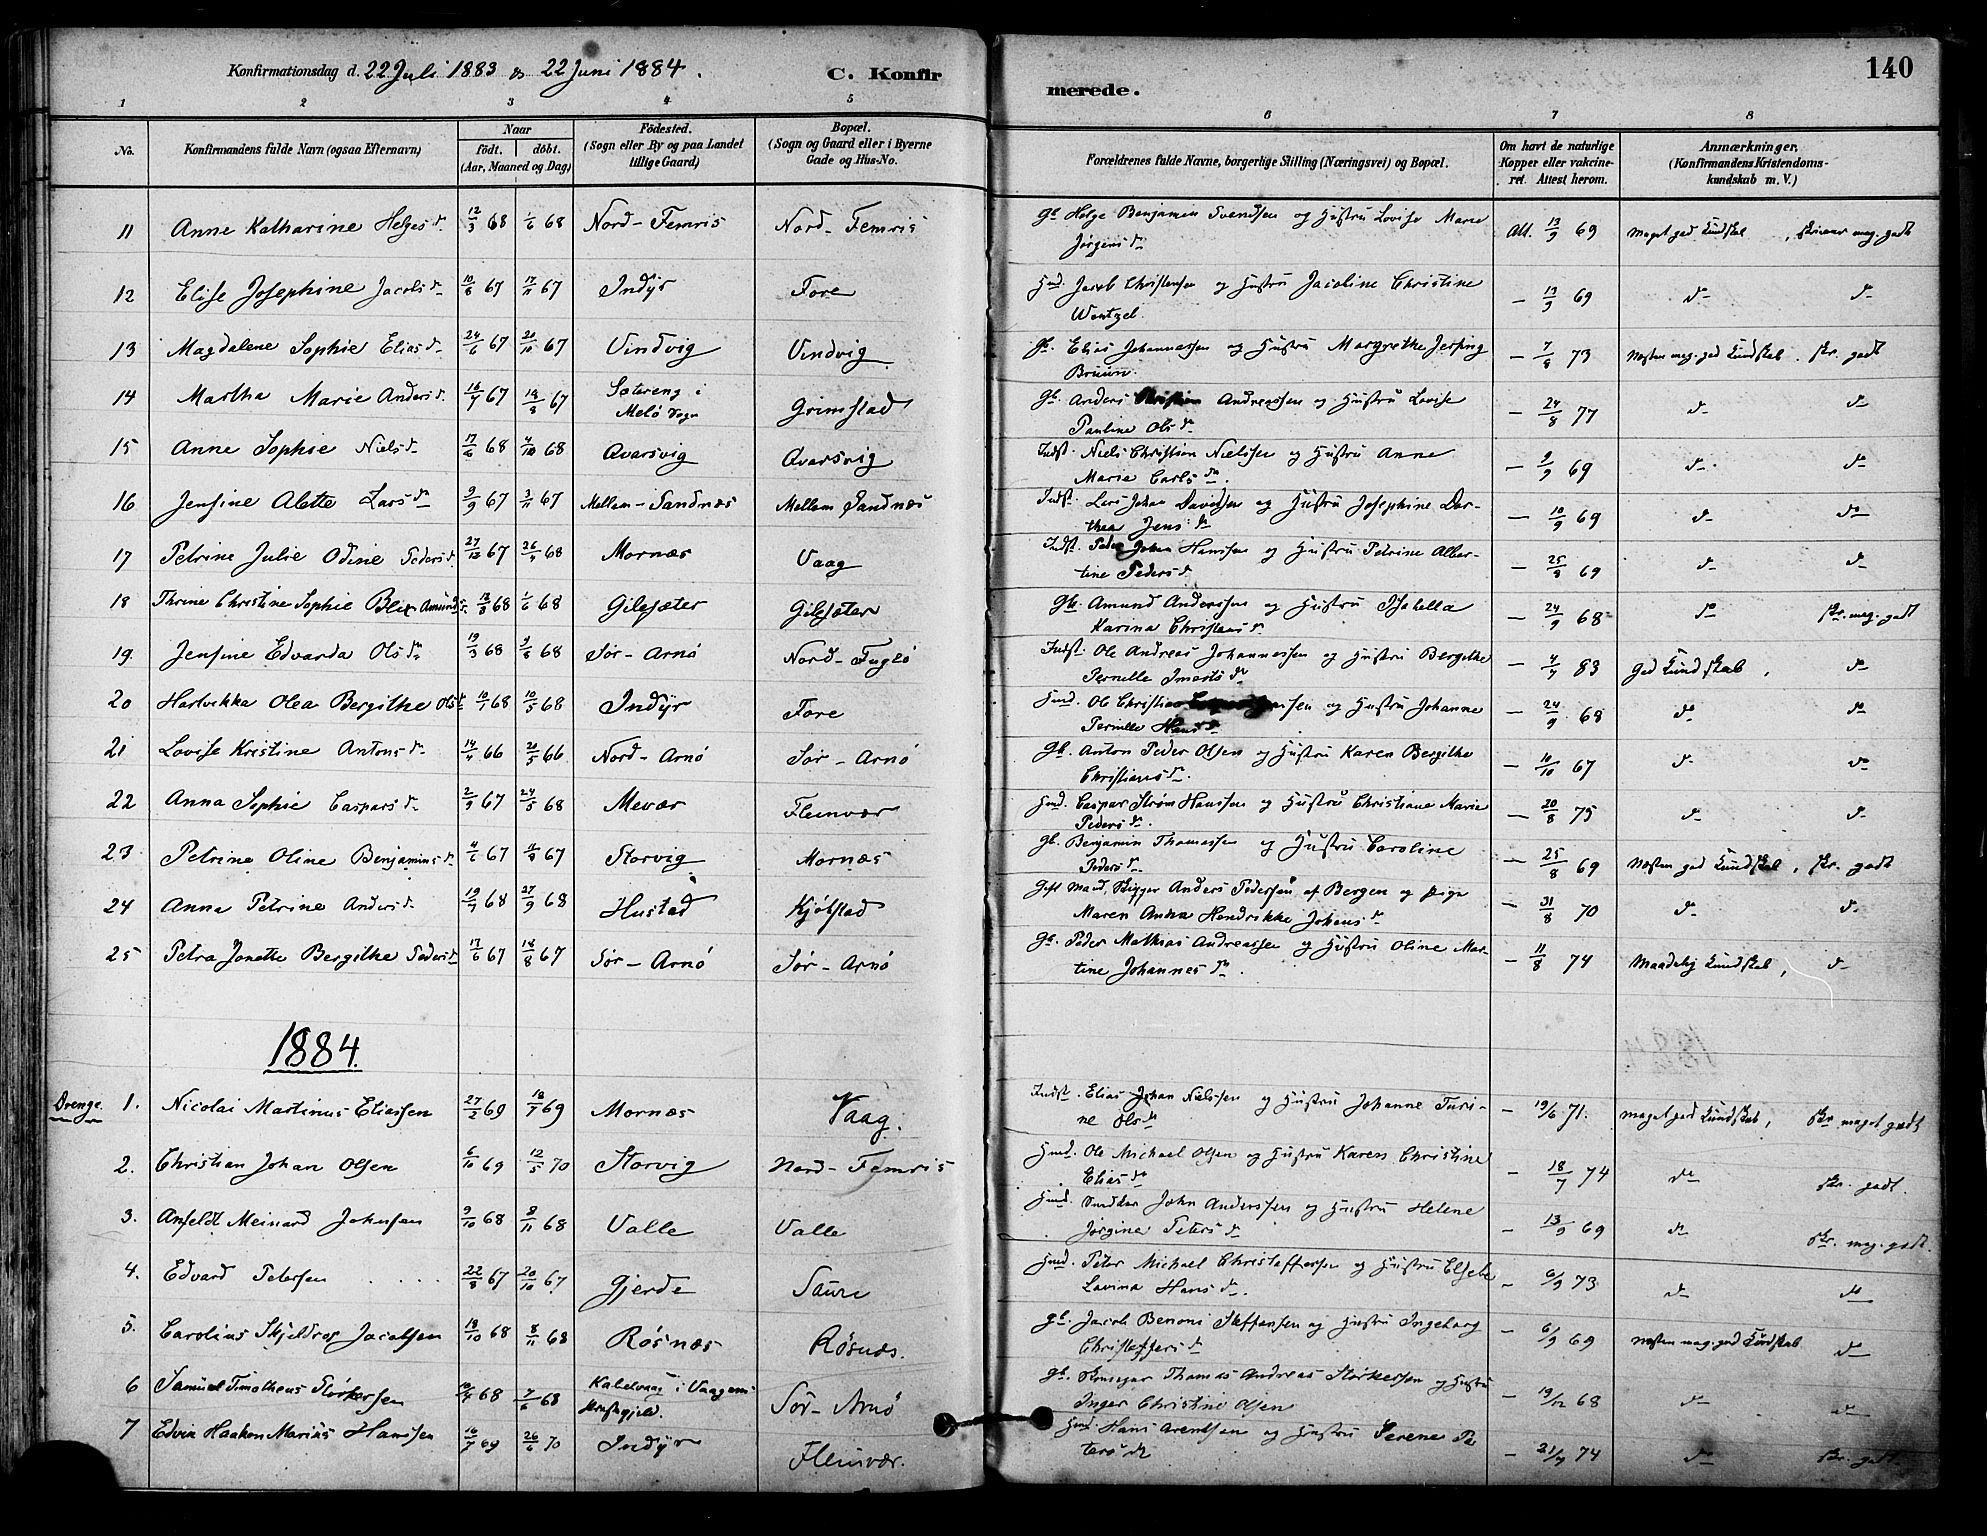 Konfirmationsdag d. 22 Juli 1883 og 22 Juni 1884. C. Konfir merede. 140
1 2 3 4 5 6 7 8
No. Konfirmandens fulde Navn (ogsaa Efternavn) Naar födt. döbt. (Aar, Maaned og Dag) Födested. (Sogn eller By og paa Landet tillige Gaard) Bopæl. (Sogn og Gaard eller i Byerne Gade og Hus-No. Forældrenes fulde Navne, borgerlige Stilling (Næringsvei) og Bopæl. Om havt de naturlige Kopper eller vakcineret. Attest herom. Anmærkninger, (Konfirmandens Kristendomskundskab m. V.)
11 Anne Katharine Helgesd. 12/3 68 1/6 68 Nord-Femris Nord-Femris Gb. Helge Benjamin Svendsen og Hustru Lovise Marie
Jørgensd. Att. 13/9 69 Meget god Kundskab, skriver meg. godt
12 Elise Josephine Jacobsd. 67 67 Indyr Fore Hmd. Jacob Christensen og Hustru Jacoline Christine
Wentzel. — 13/9 69 do do
13 Magdalene Sophie Eliasd. 24/6 67 20/10 67 Vindvig Vindvig Gb. Elias Johannessen og Hustru Margrethe Jesping
Bruun. — 7/8 73 Næsten meg. god Kundskab. skr. godt
14 Martha Marie Andersd. 16/7 67 18/8 67 Sætereng i
Melö Sogn Grimstad Gb. Anders Andreassen og Hustru Lovise
Pauline Olsd. — 24/8 77 do do
15 Anne Sophie Nielsd. 17/6 68 4/10 68 Qvarsvig Qvarsvig Indst. Niels Christian Nielssen og Hustru Anne
Marie Carlsd. — 9/9 69 do do
16 Jensine Alette Larsd. 9/9 67 3/11 67 Mellem-Sandnæs Mellem Sandnæs Indst. Lars Johan Davidsen og Hustru Josephine Dor-
thea Jensd. — 10/9 69 do do
17 Petrine Julie Odine Pedersd. 27/12 67 68 Mornæs Vaag Indst. Peder Johan Hanssen og Hustru Petrine Alber-
tine Pedersd. — 25/8 69 do do
18 Thrine Christine Sophie Blix Amundsd. 68 1/6 68 Gilesæter Gilesæter Gb. Amund Anderssen og Hustru Isabella
Karina Christensd. — 24/9 68 do skr. meg. godt
19. Jensine Edvarda Olsd. 19/3 68 68 Sör-Arnö Nord-Fuglö Indst. Ole Andreas Johannessen og Hustru Bergithe
Pernille d. — 4/7 83 God Kundskab, do
20 Hartvikka Olea Bergithe Olsd. 10/1 68 10/5 68 Indyr Fore Hmd. Ole Christian og Hustru Johanne
Pernille Hansd. — 24/9 68 do do
21 Lovise Kristine Antonsd. 14/4 66 20/5 66 Nord-Arnö Sör-Arnö Gb. Anton Peder Olsen og Hustru Karen Bergithe
Christiansd. — 10/10 67 do do
22 Anna Sophie Caspersd. 2/9 67 24/5 68 Mevær Fleinvær Hmd. Caspar Ström Hanssen og Hustru Christiane Marie
Pedersd. — 20/8 75 do do
23. Petrine Oline Benjaminsd. 4/6 67 67 Storvig Mornæs Gb. Benjamin Thomassen og Hustru Caroline
Pedersd. — 25/8 69 Næsten god Kundskab, skr. godt
24 Anna Petrine Andersd. 19/7 68 27/9 68 Hustad Kjöbstad Gift Mand, Skipper Anders Pedersen af Bergen og Pige
Maren Anna Hendrikke Johansd. — 31/8 70 do do
25 Petra Jonette Bergithe Pedersd. 17/6 67 18/8 67 Sör-Arnö Sör-Arnö Gb. Peder Mathias Andreassen og Hustru Oline Mar-
tine Johannesd. — 11/8 74 Maadelig Kundskab, do
1884.
Drenge. 1. Nicolai Martinus Eliassen 27/2 69 18/7 69 Mornæs Vaag. Indst. Elias Johan Nielssen og Hustru Johanne Turi-
ne Olsd. — 19/6 71. Meget god Kundskab, skr. meget godt
2. Christian Johan Olsen 6/10 69 12/5 70 Storvig Nord-Femris Hmd. Ole Michael Olsen og Hustru Karen Christine
Eliasd. — 18/7 74 do skr. godt.
3. Anfeldt Meinard Johnsen 9/10 68 8/11 68 Valle Valle Hmd. Snedker John Anderssen og Hustru Helene
Jörgine Petersd. — 13/9 69 do skr. meg. godt.
4. Edvard Petersen 22/8 67 20/10 67 Gjerde Saura Hmd. Peter Michael Christoffersen og Hustru Elsebe
Lavina Hansd. — 6/9 73 do do
5. Carolius Skjeldrop Jacobsen 18/10 68 8/11 68 Rösnæs Rösnæs. gb. Jacob Benoni Steffensen og Hustru Ingeborg
Christoffersd. — 6/9 69 Næsten meg. god Kundskab do
6 Samuel Timotheus Störkersen 68 7/6 68 Kabelvaag i Vaagens
Præstegjeld. Sör-Arnö gb. Thomas Andreas Störkersen og Hustru
Inger Christine Olsen — 19/12 68 do do
7 Edvin Haakon Marius Hanssen 16/7 69 26/6 70 Indyr Fleinvær. Hmd. Hans Arentsen og Hustru Serene Pe
tersd. — 21/7 74 do skr. godt.